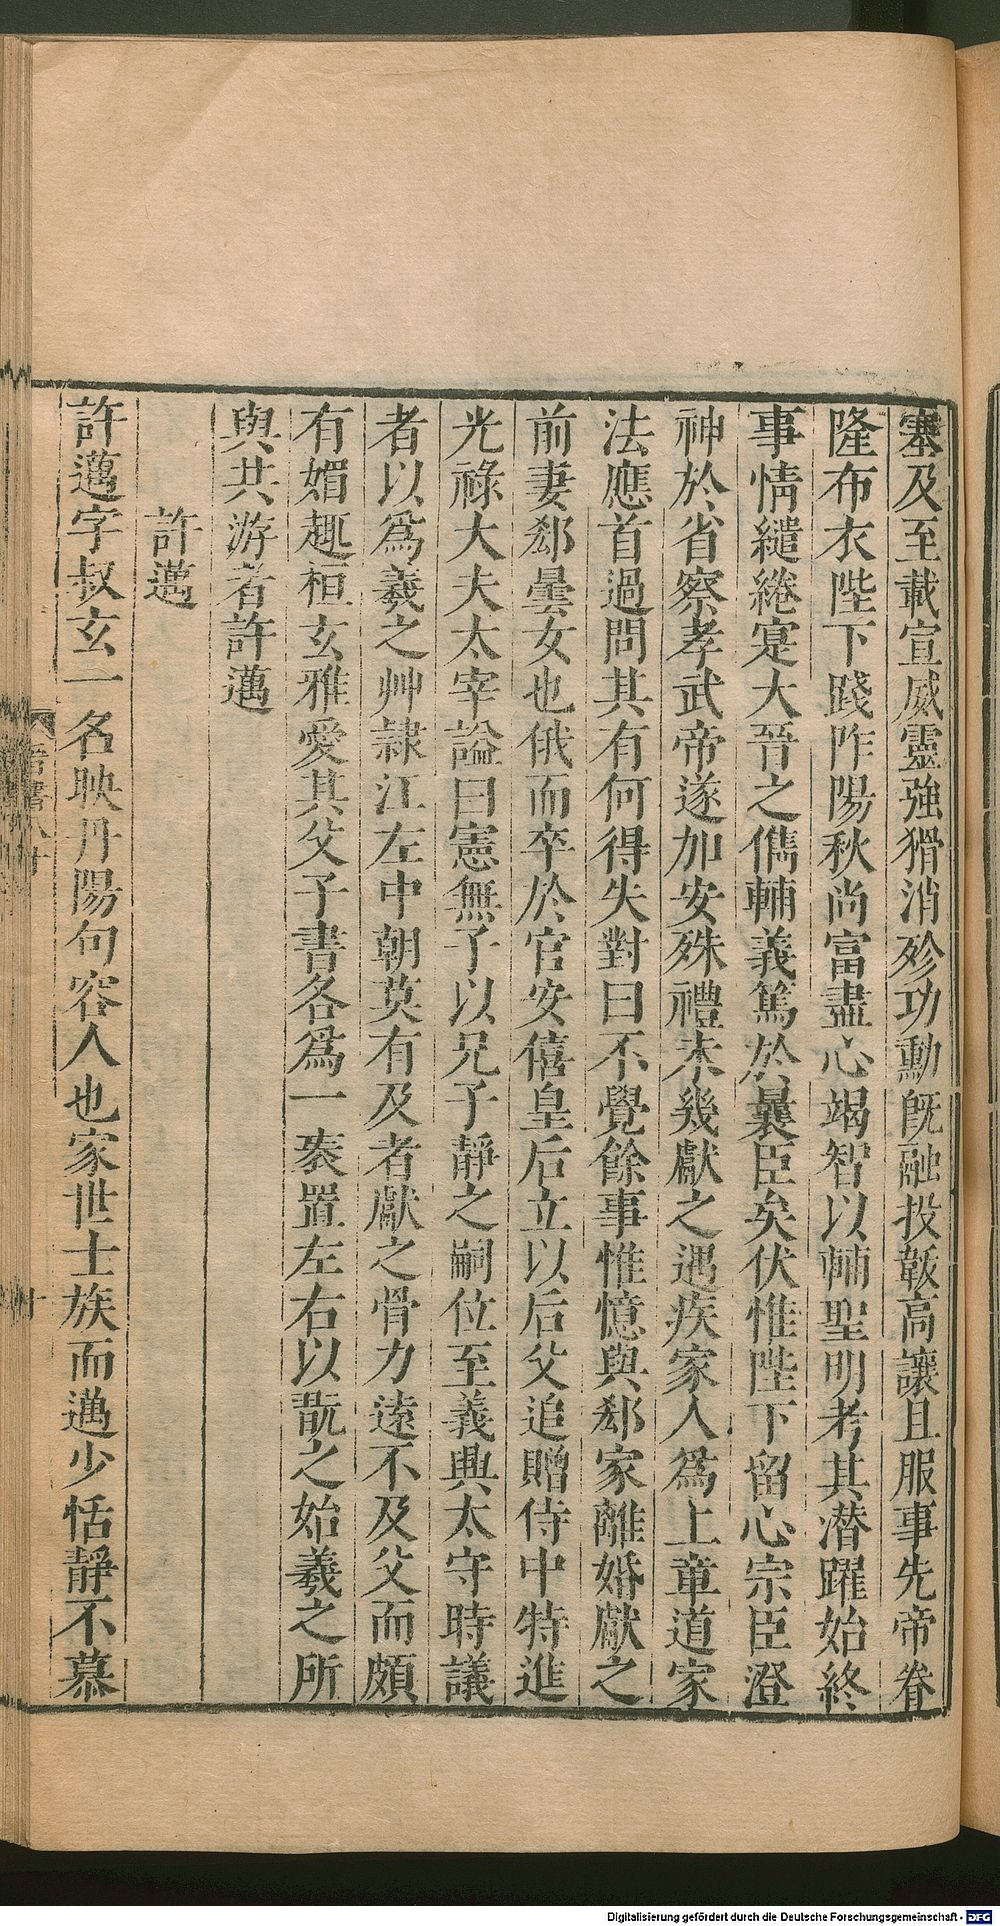 塞及至載宣威靈強猾消殄功勳既融投韍高讓且服事先帝眷
隆布衣陛下踐阼陽秋尚富盡心竭智以輔聖明考其潛躍始終
事情繾綣寔大晉之儁輔義篤於曩臣矣伏惟陛下留心宗臣澄
神於省察孝武帝遂加安殊禮未幾獻之遇疾家人爲上章道家
法應首過問其有何得失對曰不覺餘事惟憶與郄家離婚獻之
前妻郄曇女也俄而卒於官安僖皇后立以后父追贈侍中特進
光祿大夫太宰諡曰憲無子以兄子靜之嗣位至義興太守時議
者以爲羲之艸隷江左中朝莫有及者獻之骨力遠不及父而頗
有媚趣桓玄雅愛其父子書各爲一袠置左右以翫之始羲之所
與共游者許邁
許邁
許邁字叔玄一名映丹陽句容人也家世士族而邁少恬靜不慕
晉書八十
十
Digitalisierung gefördert durch die Deutsche Forschungsgemeinschaft - DFG